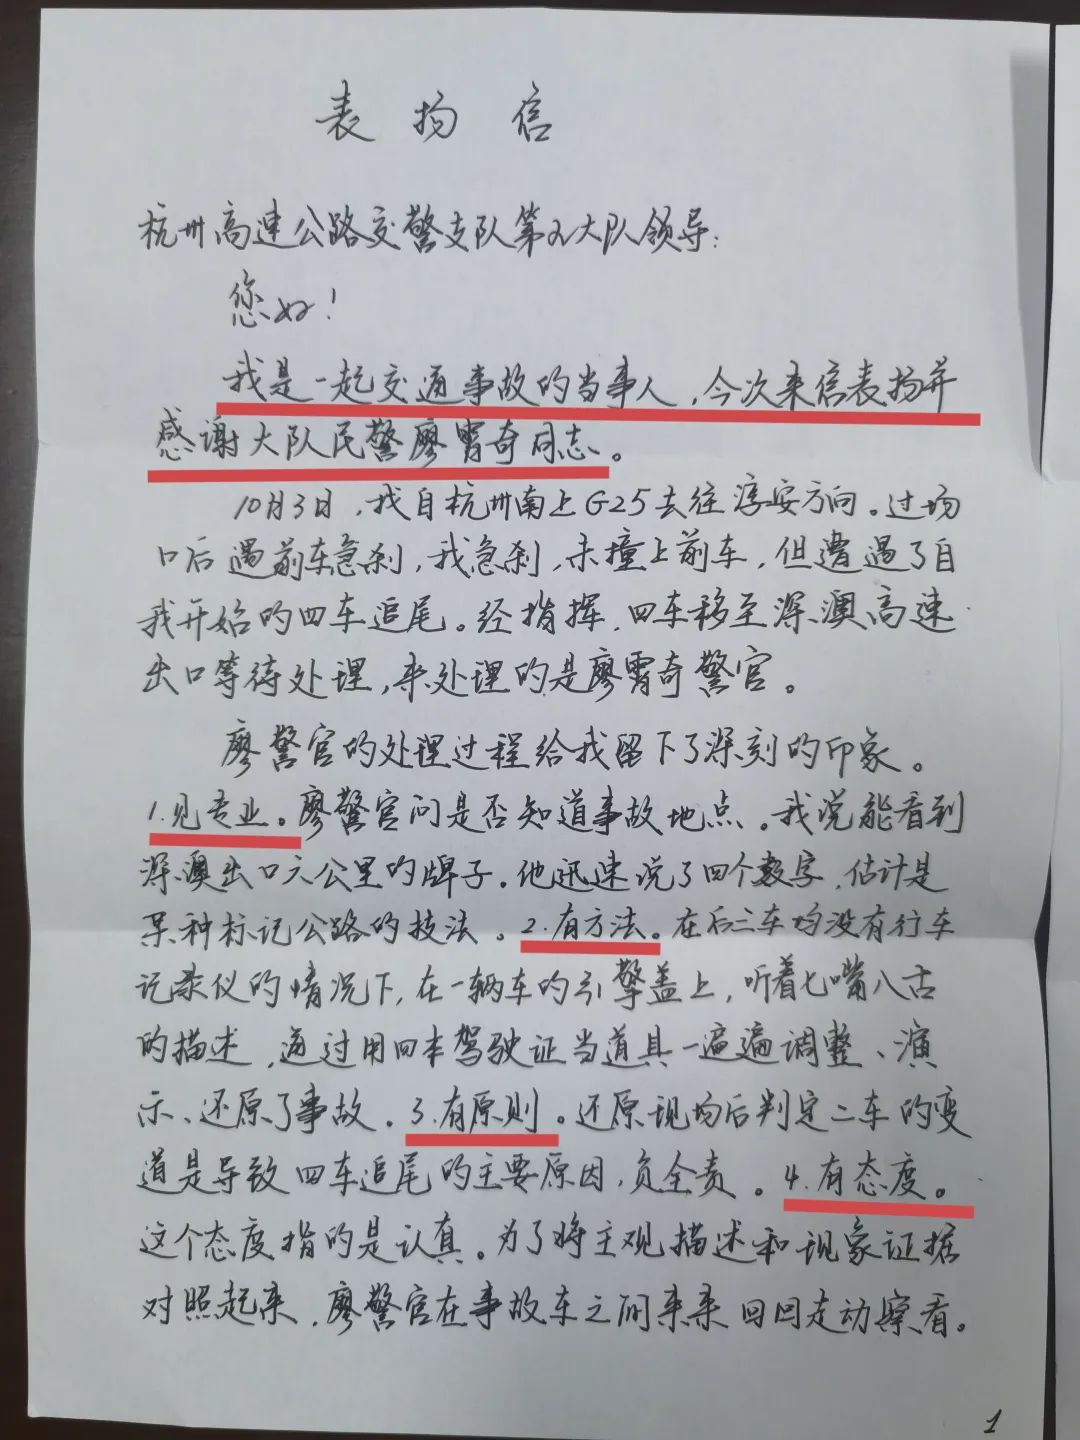 表扬信
杭州高速公路交警支队第二大队领导:
您好!
我是一起交通事故的当事人,今次来信表扬并
感谢大队民警廖霄奇同志。
10月3日,我自杭州南上G25去往淳安方向。过场
口后遇前车急刹,我急刹,未撞上前车,但遭遇了自
我开始的四车追尾。经指挥,四车移至深澳高速
出口等待处理,来处理的是廖霄奇警官。
廖警官的处理过程给我留下了深刻的印象。
1.见专业。廖警官问是否知道事故地点。我说能看到
深澳出口六公里的牌子。他迅速说了四个数字,估计是
某种标记公路的技法。2.有方法。在后三车均没有行车
记录仪的情况下,在一辆车的引擎盖上,听着七嘴八舌
的描述,通过用四本驾驶证当道具一遍遍调整、演
示、还原了事故。3.有原则。还原现场后判定二车的变
道是导致四车追尾的主要原因,负全责。4.有态度。
这个态度指的是认真。为了将主观描述和现象证据
对照起来,廖警官在事故车之间来来回回走动察看。
1